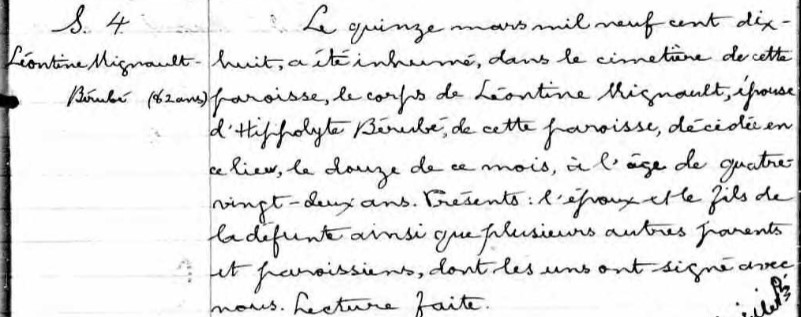 S. 4
Léontine Mignault-
Bérubé (82 ans)
Le quinze mars mil neuf cent dix-
huit, a été inhumé, dans le cimetière de cette
paroisse, le corps de Léontine Mignault, épouse
d'Hippolyte Bérubé, de cette paroisse, décédée en
ce lieu, le douze de ce mois, à l'âge de quatre-
vingt-deux ans. Présents: l'époux et le fils de
la défunte ainsi que plusieurs autres parents
et paroissiens, dont les uns ont signé avec
nous. Lecture faite.